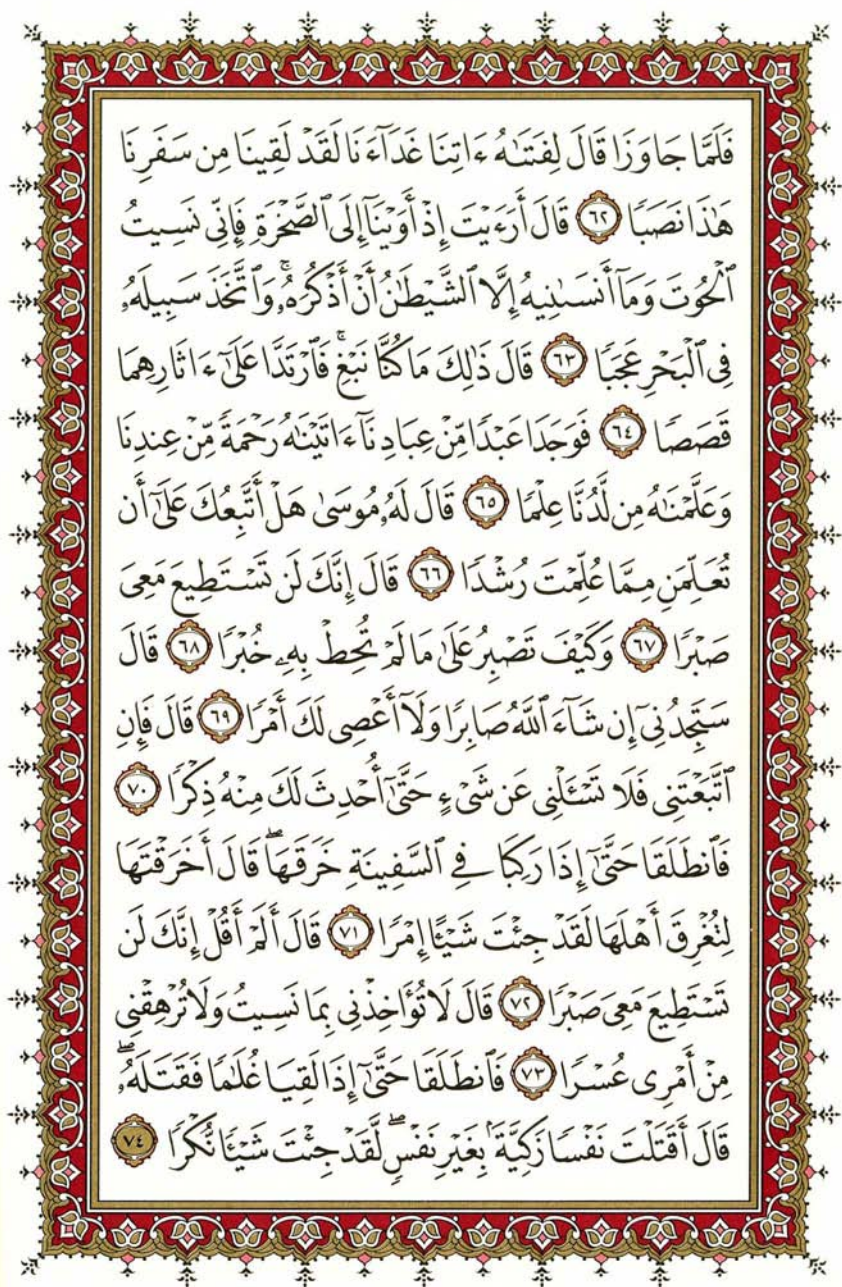 فَلَمَّا جَاوَزَا قَالَ لِفَتَىٰهُ ءَاتِنَا غَدَآءَنَا لَقَدْ لَقِينَا مِن سَفَرِنَا
هَٰذَا نَصَبًا ٦٢ قَالَ أَرَءَيْتَ إِذْ أَوَيْنَآ إِلَى ٱلصَّخْرَةِ فَإِنِّى نَسِيتُ
ٱلْحُوتَ وَمَآ أَنسَىٰنِيهُ إِلَّا ٱلشَّيْطَٰنُ أَنْ أَذْكُرَهُۥۚ وَٱتَّخَذَ سَبِيلَهُۥ
فِى ٱلْبَحْرِ عَجَبًا ٦٣ قَالَ ذَٰلِكَ مَا كُنَّا نَبْغِۚ فَٱرْتَدَّا عَلَىٰٓ ءَاثَارِهِمَا
قَصَصًا ٦٤ فَوَجَدَا عَبْدًا مِّنْ عِبَادِنَآ ءَاتَيْنَٰهُ رَحْمَةً مِّنْ عِندِنَا
وَعَلَّمْنَٰهُ مِن لَّدُنَّا عِلْمًا ٦٥ قَالَ لَهُۥ مُوسَىٰ هَلْ أَتَّبِعُكَ عَلَىٰٓ أَن
تُعَلِّمَنِ مِمَّا عُلِّمْتَ رُشْدًا ٦٦ قَالَ إِنَّكَ لَن تَسْتَطِيعَ مَعِىَ
صَبْرًا ٦٧ وَكَيْفَ تَصْبِرُ عَلَىٰ مَا لَمْ تُحِطْ بِهِۦ خُبْرًا ٦٨ قَالَ
سَتَجِدُنِىٓ إِن شَآءَ ٱللَّهُ صَابِرًا وَلَآ أَعْصِى لَكَ أَمْرًا ٦٩ قَالَ فَإِنِ
ٱتَّبَعْتَنِى فَلَا تَسْـَٔلْنِى عَن شَىْءٍ حَتَّىٰٓ أُحْدِثَ لَكَ مِنْهُ ذِكْرًا ٧٠
فَٱنطَلَقَا حَتَّىٰٓ إِذَا رَكِبَا فِى ٱلسَّفِينَةِ خَرَقَهَاۖ قَالَ أَخَرَقْتَهَا
لِتُغْرِقَ أَهْلَهَا لَقَدْ جِئْتَ شَيْـًٔا إِمْرًا ٧١ قَالَ أَلَمْ أَقُلْ إِنَّكَ لَن
تَسْتَطِيعَ مَعِىَ صَبْرًا ٧٢ قَالَ لَا تُؤَاخِذْنِى بِمَا نَسِيتُ وَلَا تُرْهِقْنِى
مِنْ أَمْرِى عُسْرًا ٧٣ فَٱنطَلَقَا حَتَّىٰٓ إِذَا لَقِيَا غُلَٰمًا فَقَتَلَهُۥۖ
قَالَ أَقَتَلْتَ نَفْسًا زَكِيَّةًۢ بِغَيْرِ نَفْسٍۖ لَّقَدْ جِئْتَ شَيْـًٔا نُّكْرًا ٧٤